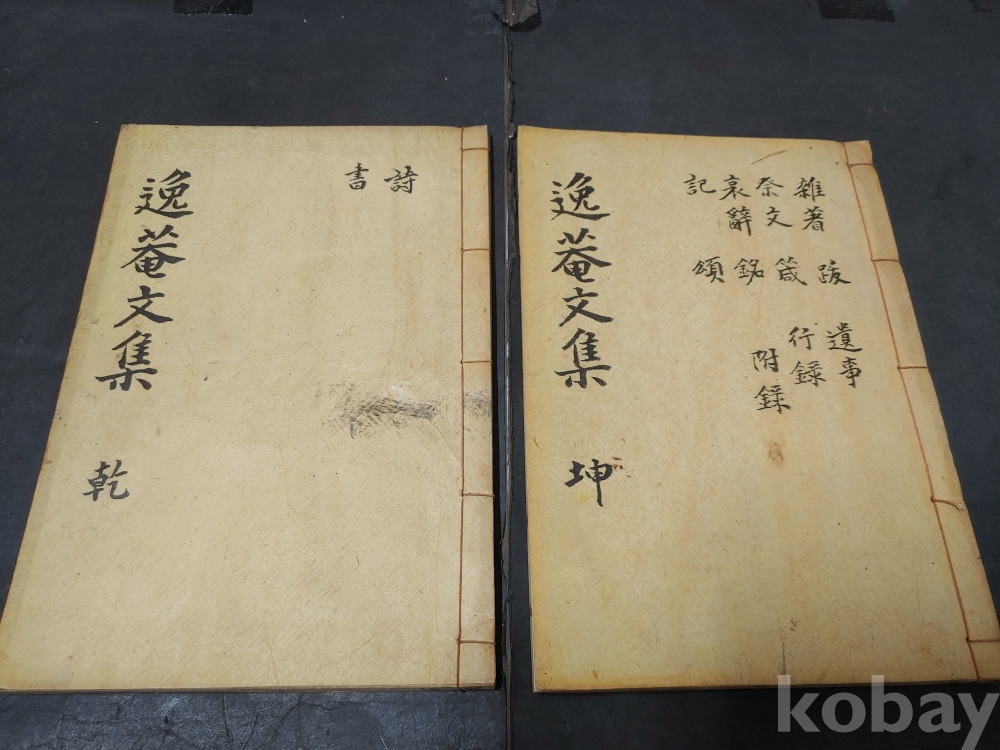 逸菴文集 乾
詩
書
逸菴文集 坤
雜著 跋 遺事
祭文 箴 行錄
哀辭 銘 附錄
記 頌
kobay